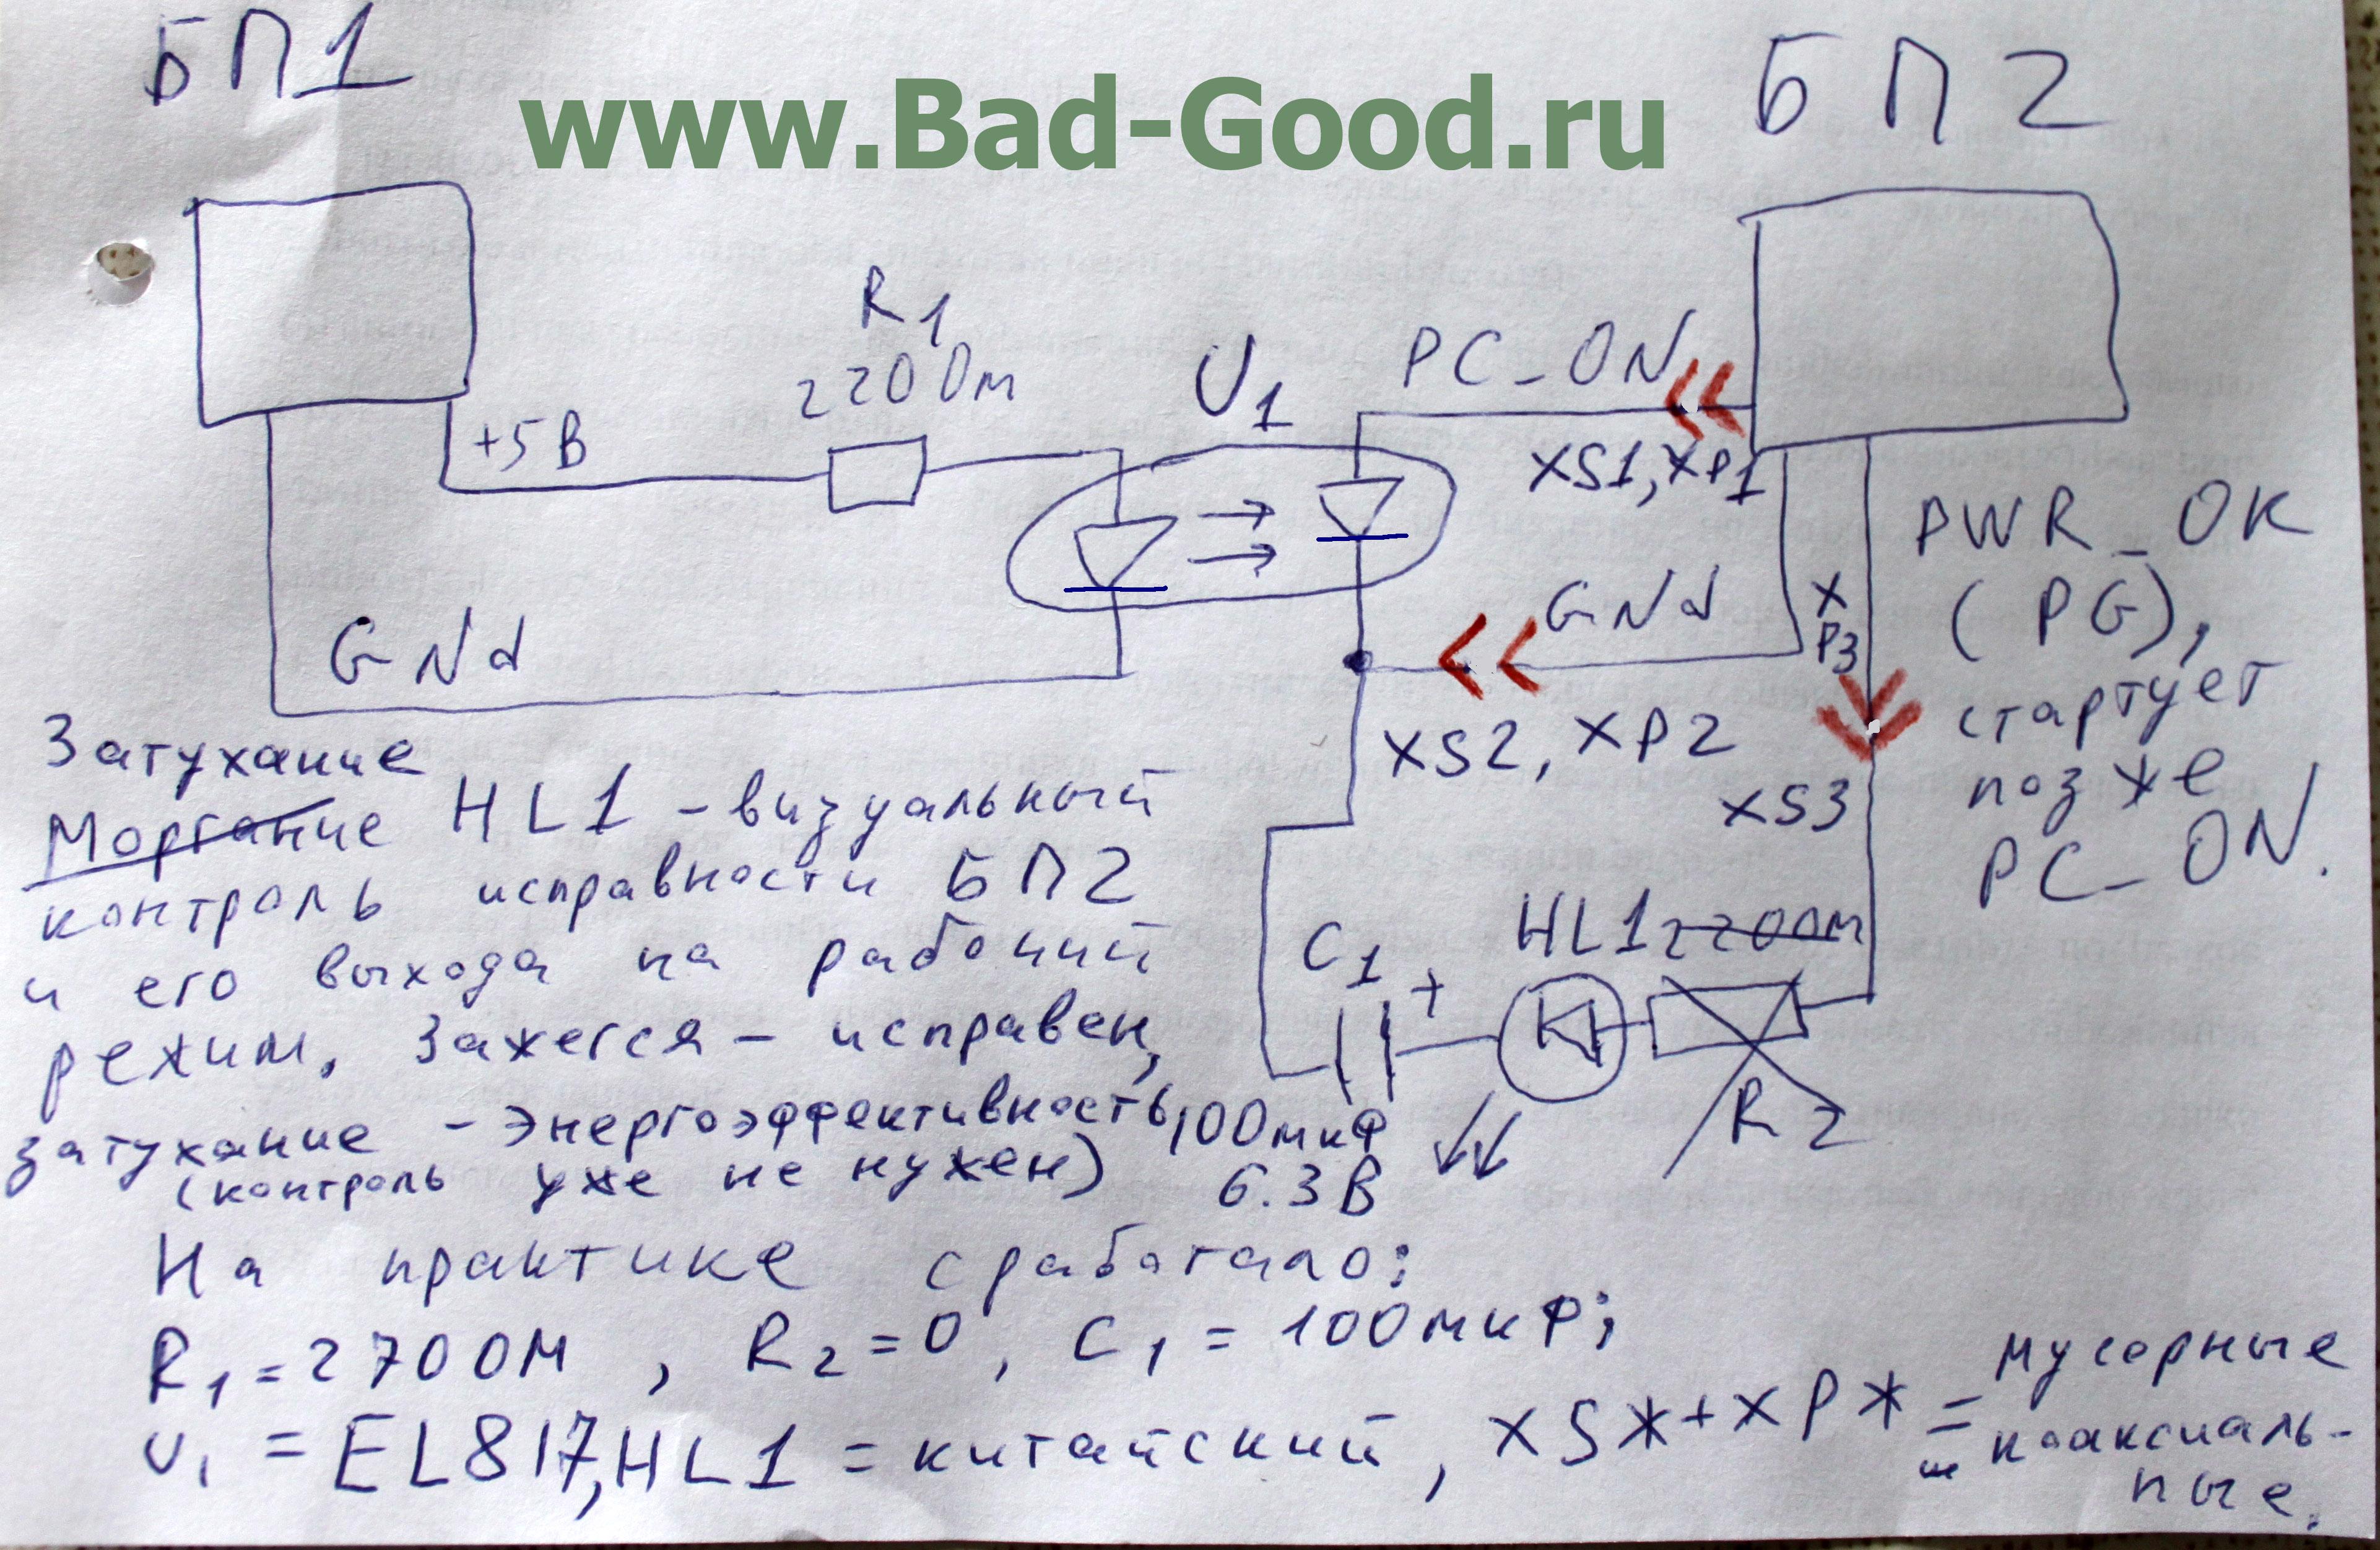 БП1
www.Bad-Good.ru
БП2
R1
220 Ом
U1
PC_ON
+5В
XS1, XP1
PWR_OK
(PG),
стартует
позже
PC_ON.
GNd
GNd
XP3
XS2, XP2
XS3
Затухание
Моргание HL1 - визуальный
контроль исправности БП2
и его выхода на рабочий
режим. Зажегся - исправен,
затухание - энергоэффективность
(контроль уже не нужен)
C1
+
HL1
220 Ом
R2
100мкФ
6.3В
На практике сработало:
R1=270 Ом, R2=0, C1=100мкФ;
U1 = EL817, HL1 = китайский, XS*+XP* =
= мусорные
коаксиаль-
ные.